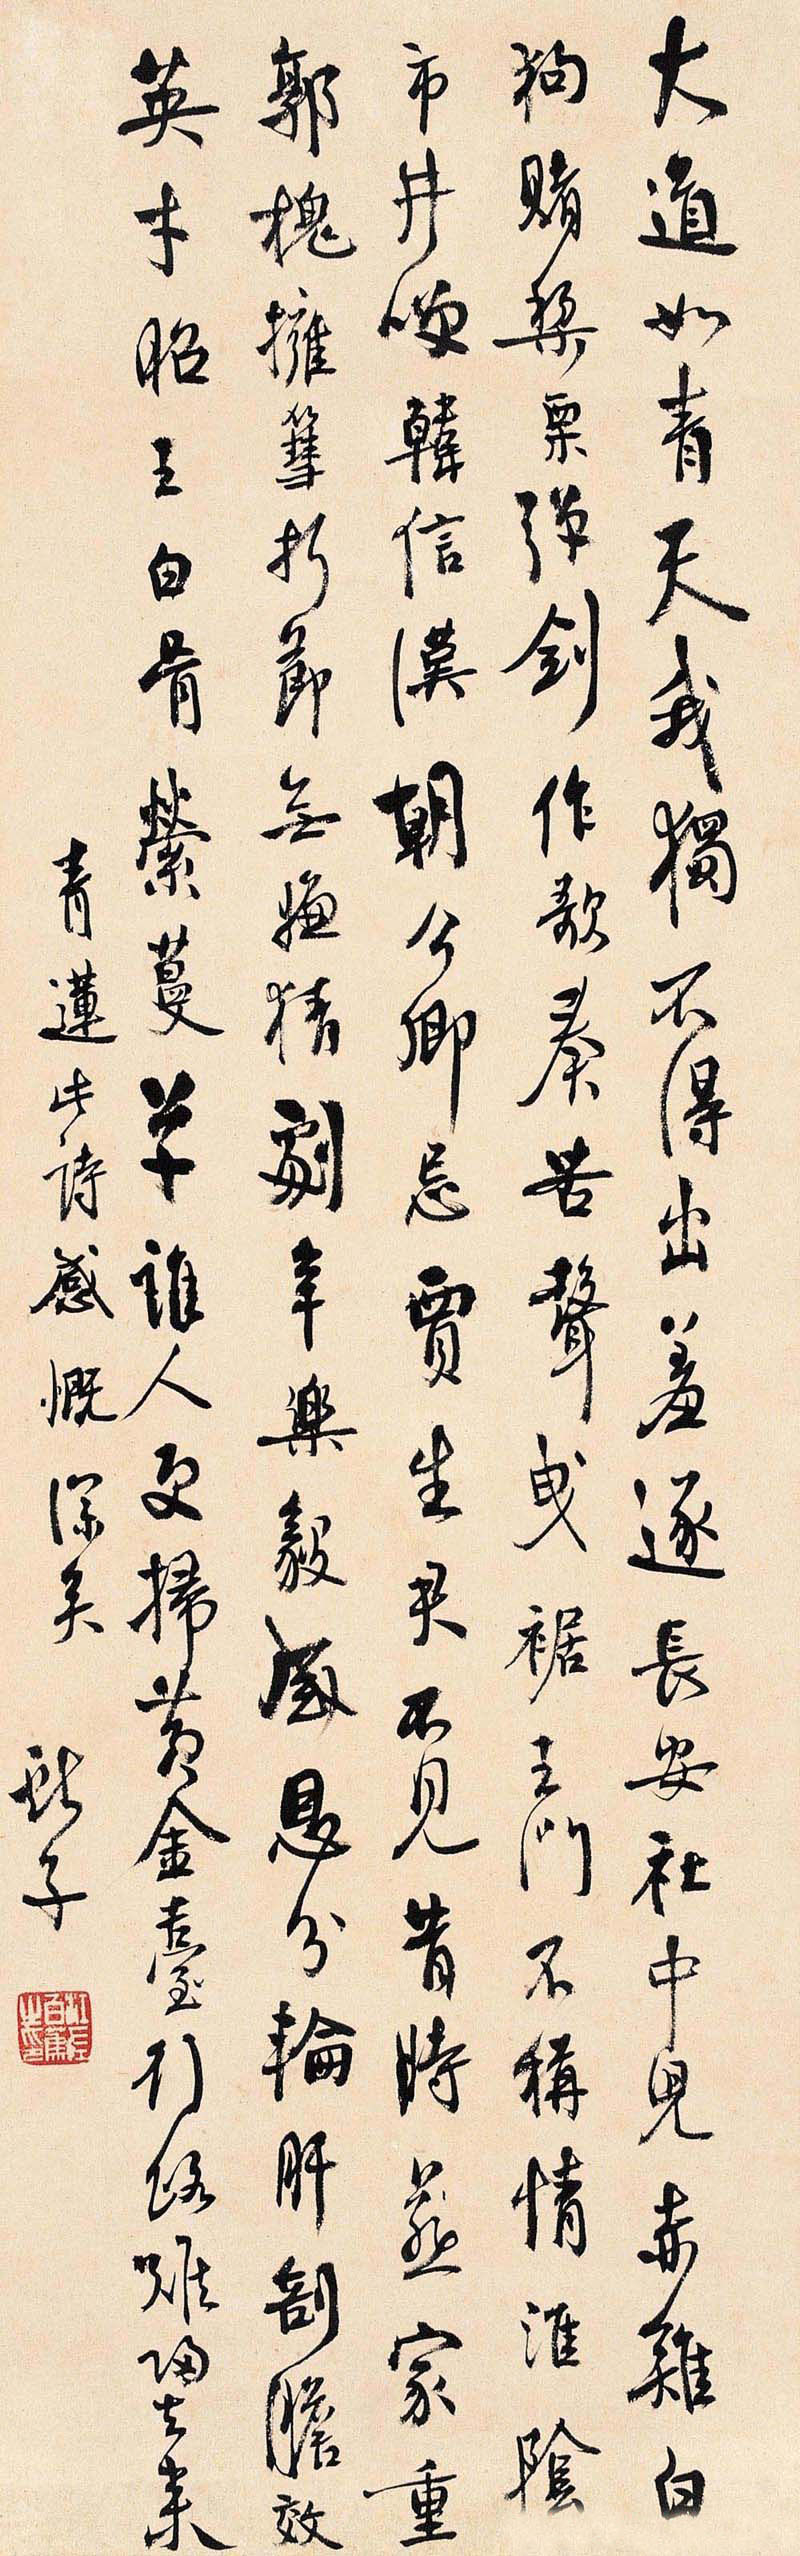 大道如青天我獨不得出羞逐長安社中兒赤雞白
狗賭梨栗彈劍作歌奏苦聲曳裾王門不稱情淮陰
市井咲韓信漢朝公卿忌賈生君不見昔時燕家重
郭槐擁篲折節無嫌猜劇辛樂毅感恩分輪肝剖膽效
英才昭王白骨縈蔓草誰人更掃黃金臺行路難歸去來
青蓮此詩感慨深矣